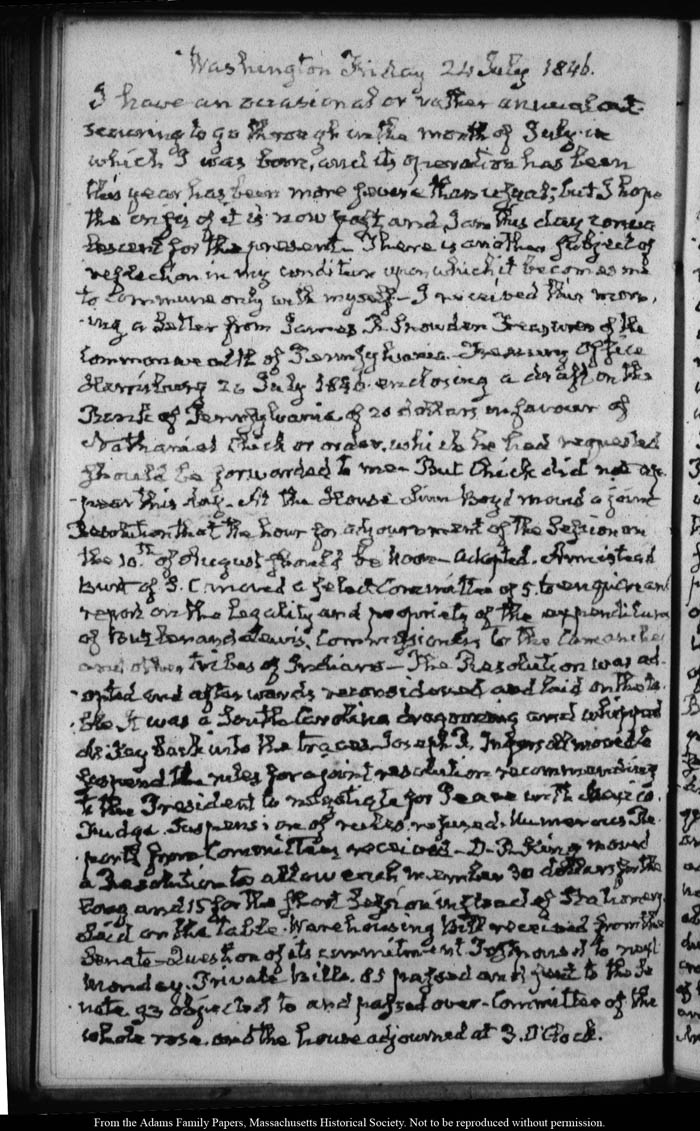 Washington Friday 24 July 1846.
I have an occasional or rather annual out
scouring to go through in the month of July in
which I was born, and its operation has been
this year has been more severe than usual; but I hope
the crisis of it is now past and I am this day conva
lescent for the present. There is another subject of
reflection in my condition upon which it becomes me
to commune only with myself — I received this morn,
ing a Letter from James R. Snowden Treasurer of the
Commonwealth of Pennsylvania. Treasury Office
Harrisburg 20 July 1846. enclosing a draft on the
Bank of Pennsylvania of 20 dollars in favour of
Nathaniel Chick or order, which he had requested
should be forwarded to me — But Chick did not ap
pear this day. At the House Linn Boyd moved a joint
Resolution that the hour for adjournment of the Session on
the 10.th of August should be Noon — adopted. Armistead
Burt of S. C. moved a select Committee of 5. to enquire and
report on the legality and propriety of the expenditure
of Butler and Lewis, Commissioners to the Comanches
and other tribes of Indians — The Resolution was ad
opted and afterwards reconsidered and laid on the ta
ble. It was a South Carolina dragooning and whipped
back into the traces. Joseph R. Ingersoll moved to
suspend the rules for a joint resolution recommending
to the President to negotiate for Peace with Mexico.
Fudge. Suspension of rules refused. Numerous Re
ports from Committees received — D. P. King moved
a Resolution to allow each member 30 dollars for the
long and 15 for the short Session instead of Stationery.
Laid on the table. Warehousing Bill received from the
Senate — Question of its commitment Postponed to next
Monday. Private bills. 85 passed and sent to the Se
nate 93 objected to and passed over. Committee of the
whole rose, and the house adjourned at 3. O'Clock.
From the Adams Family Papers, Massachusetts Historical Society. Not to be reproduced without permission.